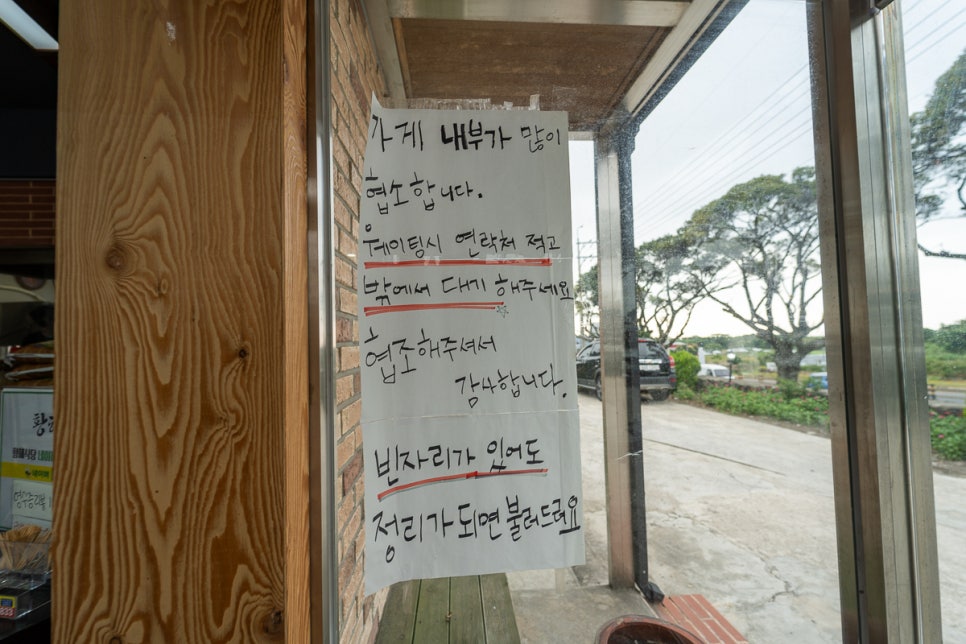 가게 내부가 많이
협소합니다.
웨이팅시 연락처 적고
밖에서 대기 해주세요
협조해주셔서
감사합니다.
빈자리가 있어도
정리가 되면 불러드려요